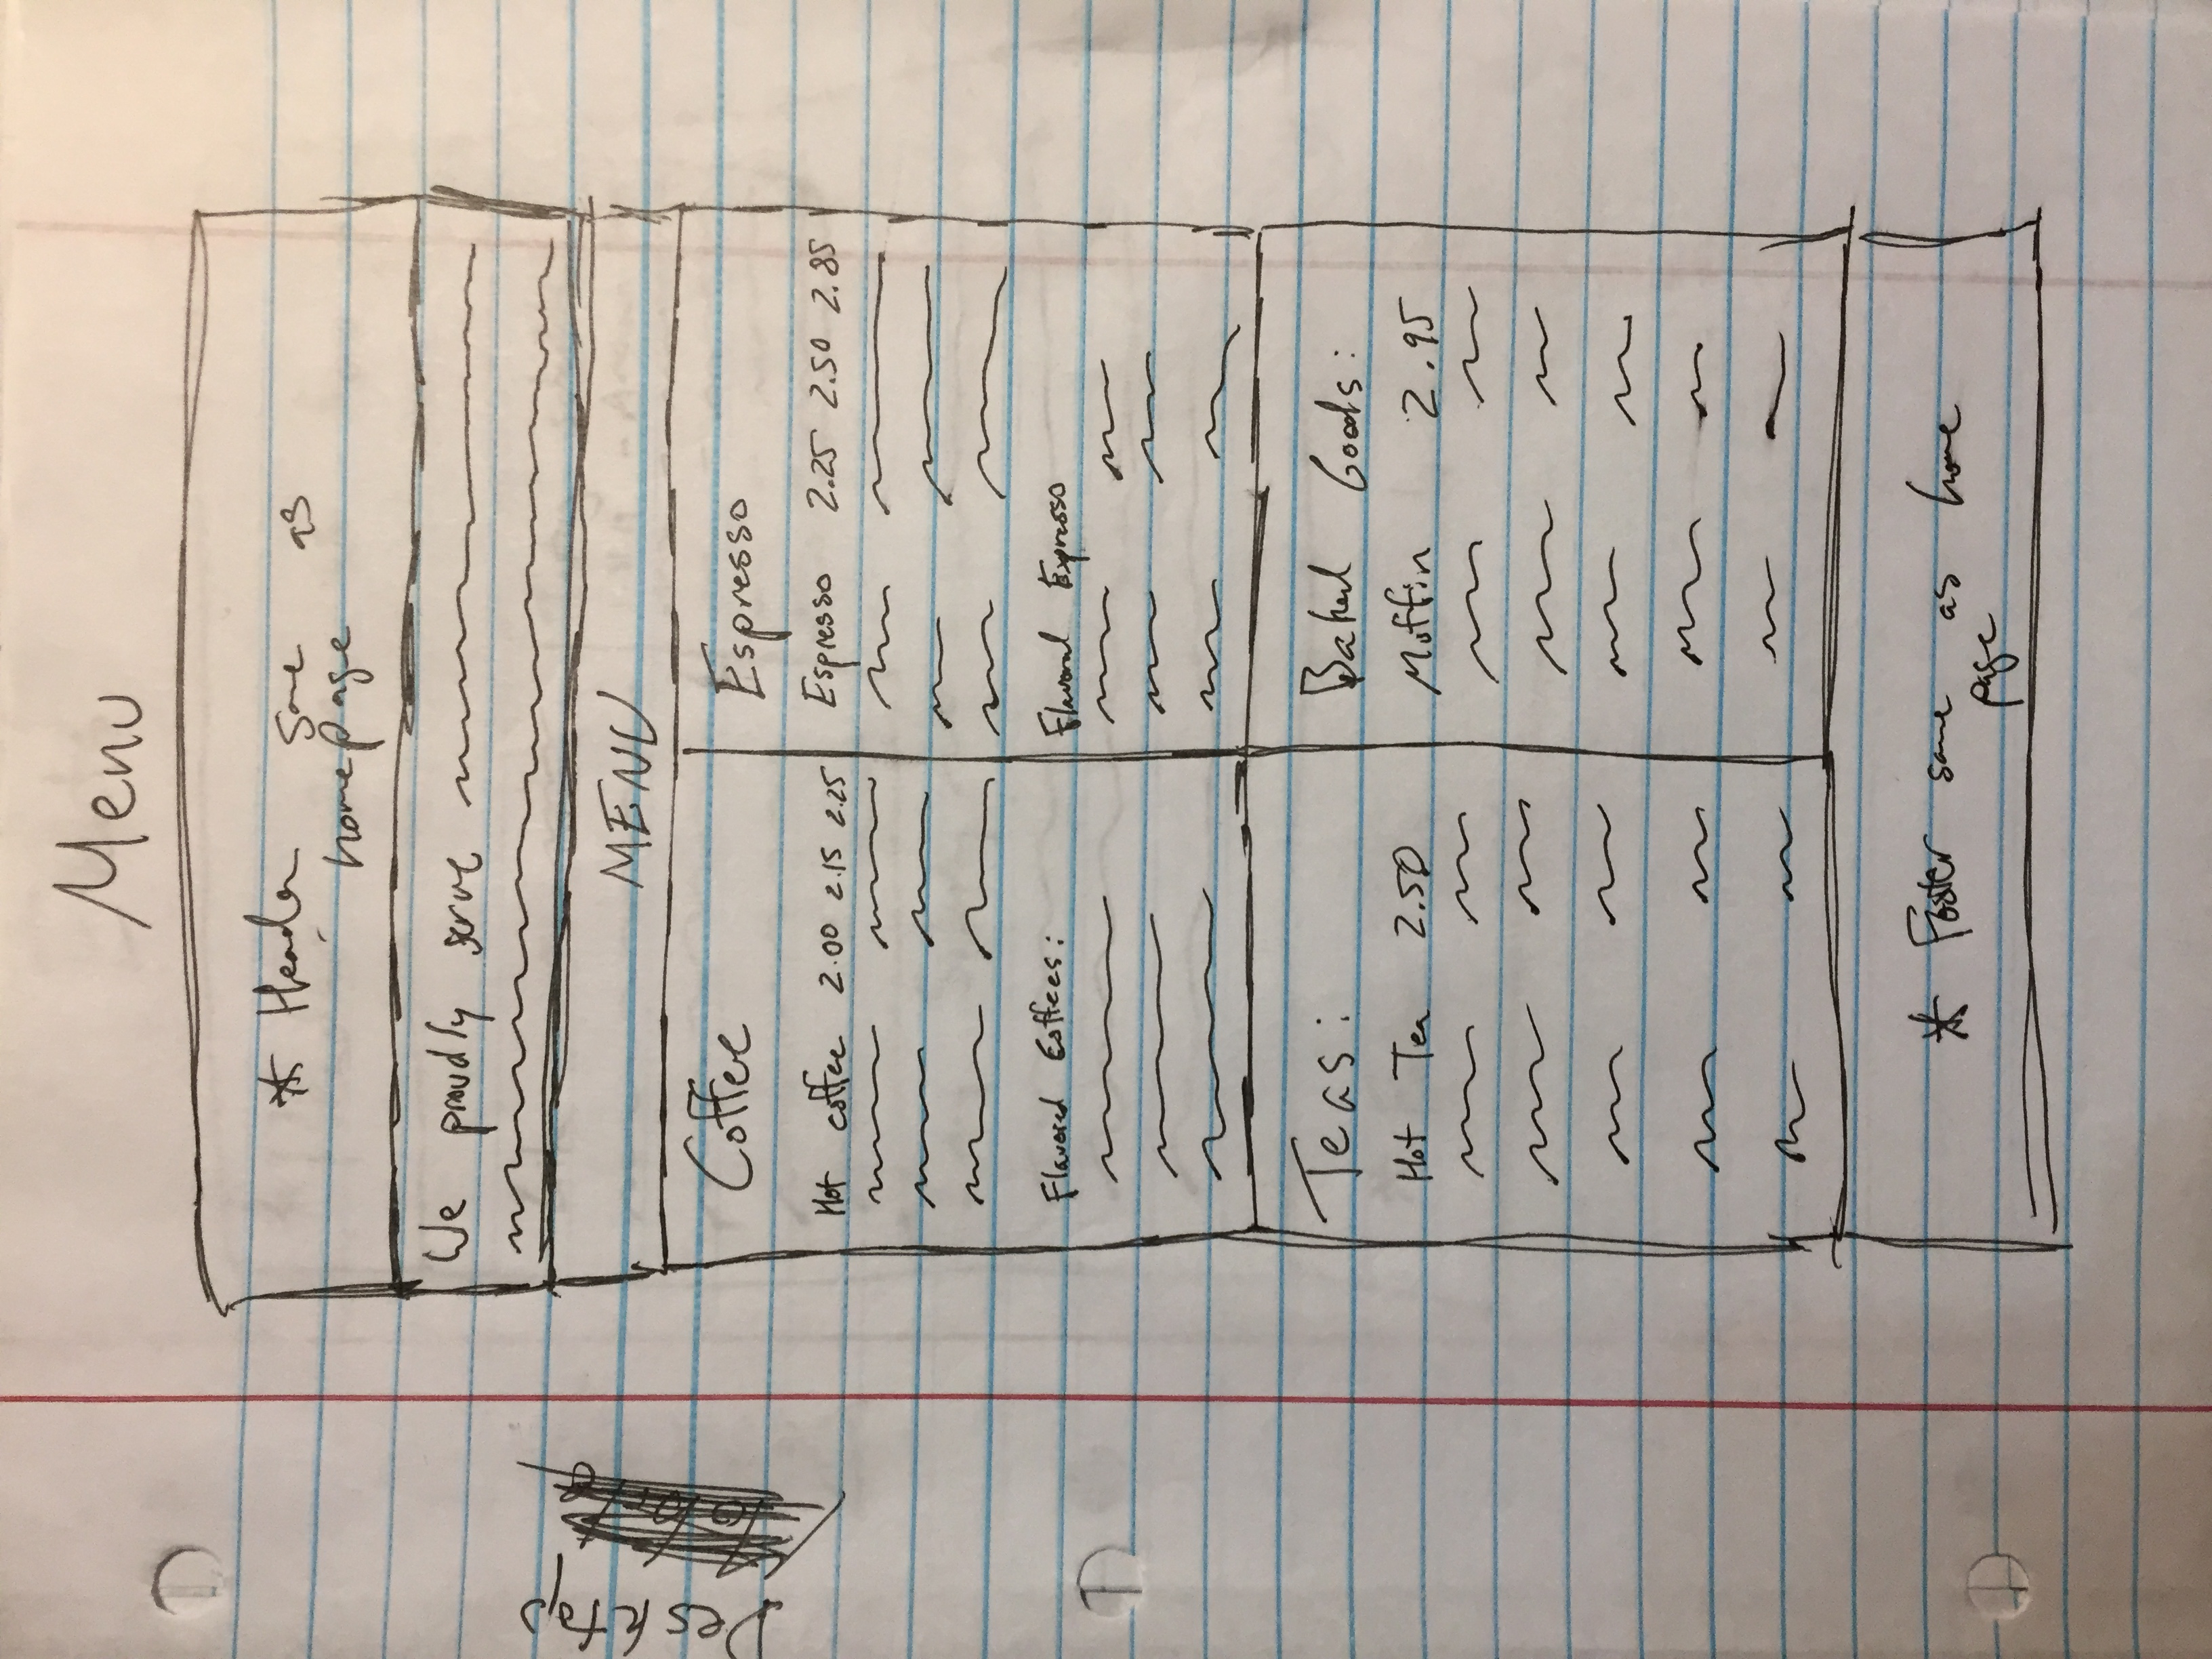 Menu
* Header same as
homepage
We proudly serve
MENU
Coffee
Hot coffee 2.00 2.15 2.25
Flavored Coffees:
Espresso
Espresso 2.25 2.50 2.85
Flavored Espresso
Teas:
Hot Tea 2.50
Baked Goods:
Muffin 2.95
* Footer same as home
page
Desktop